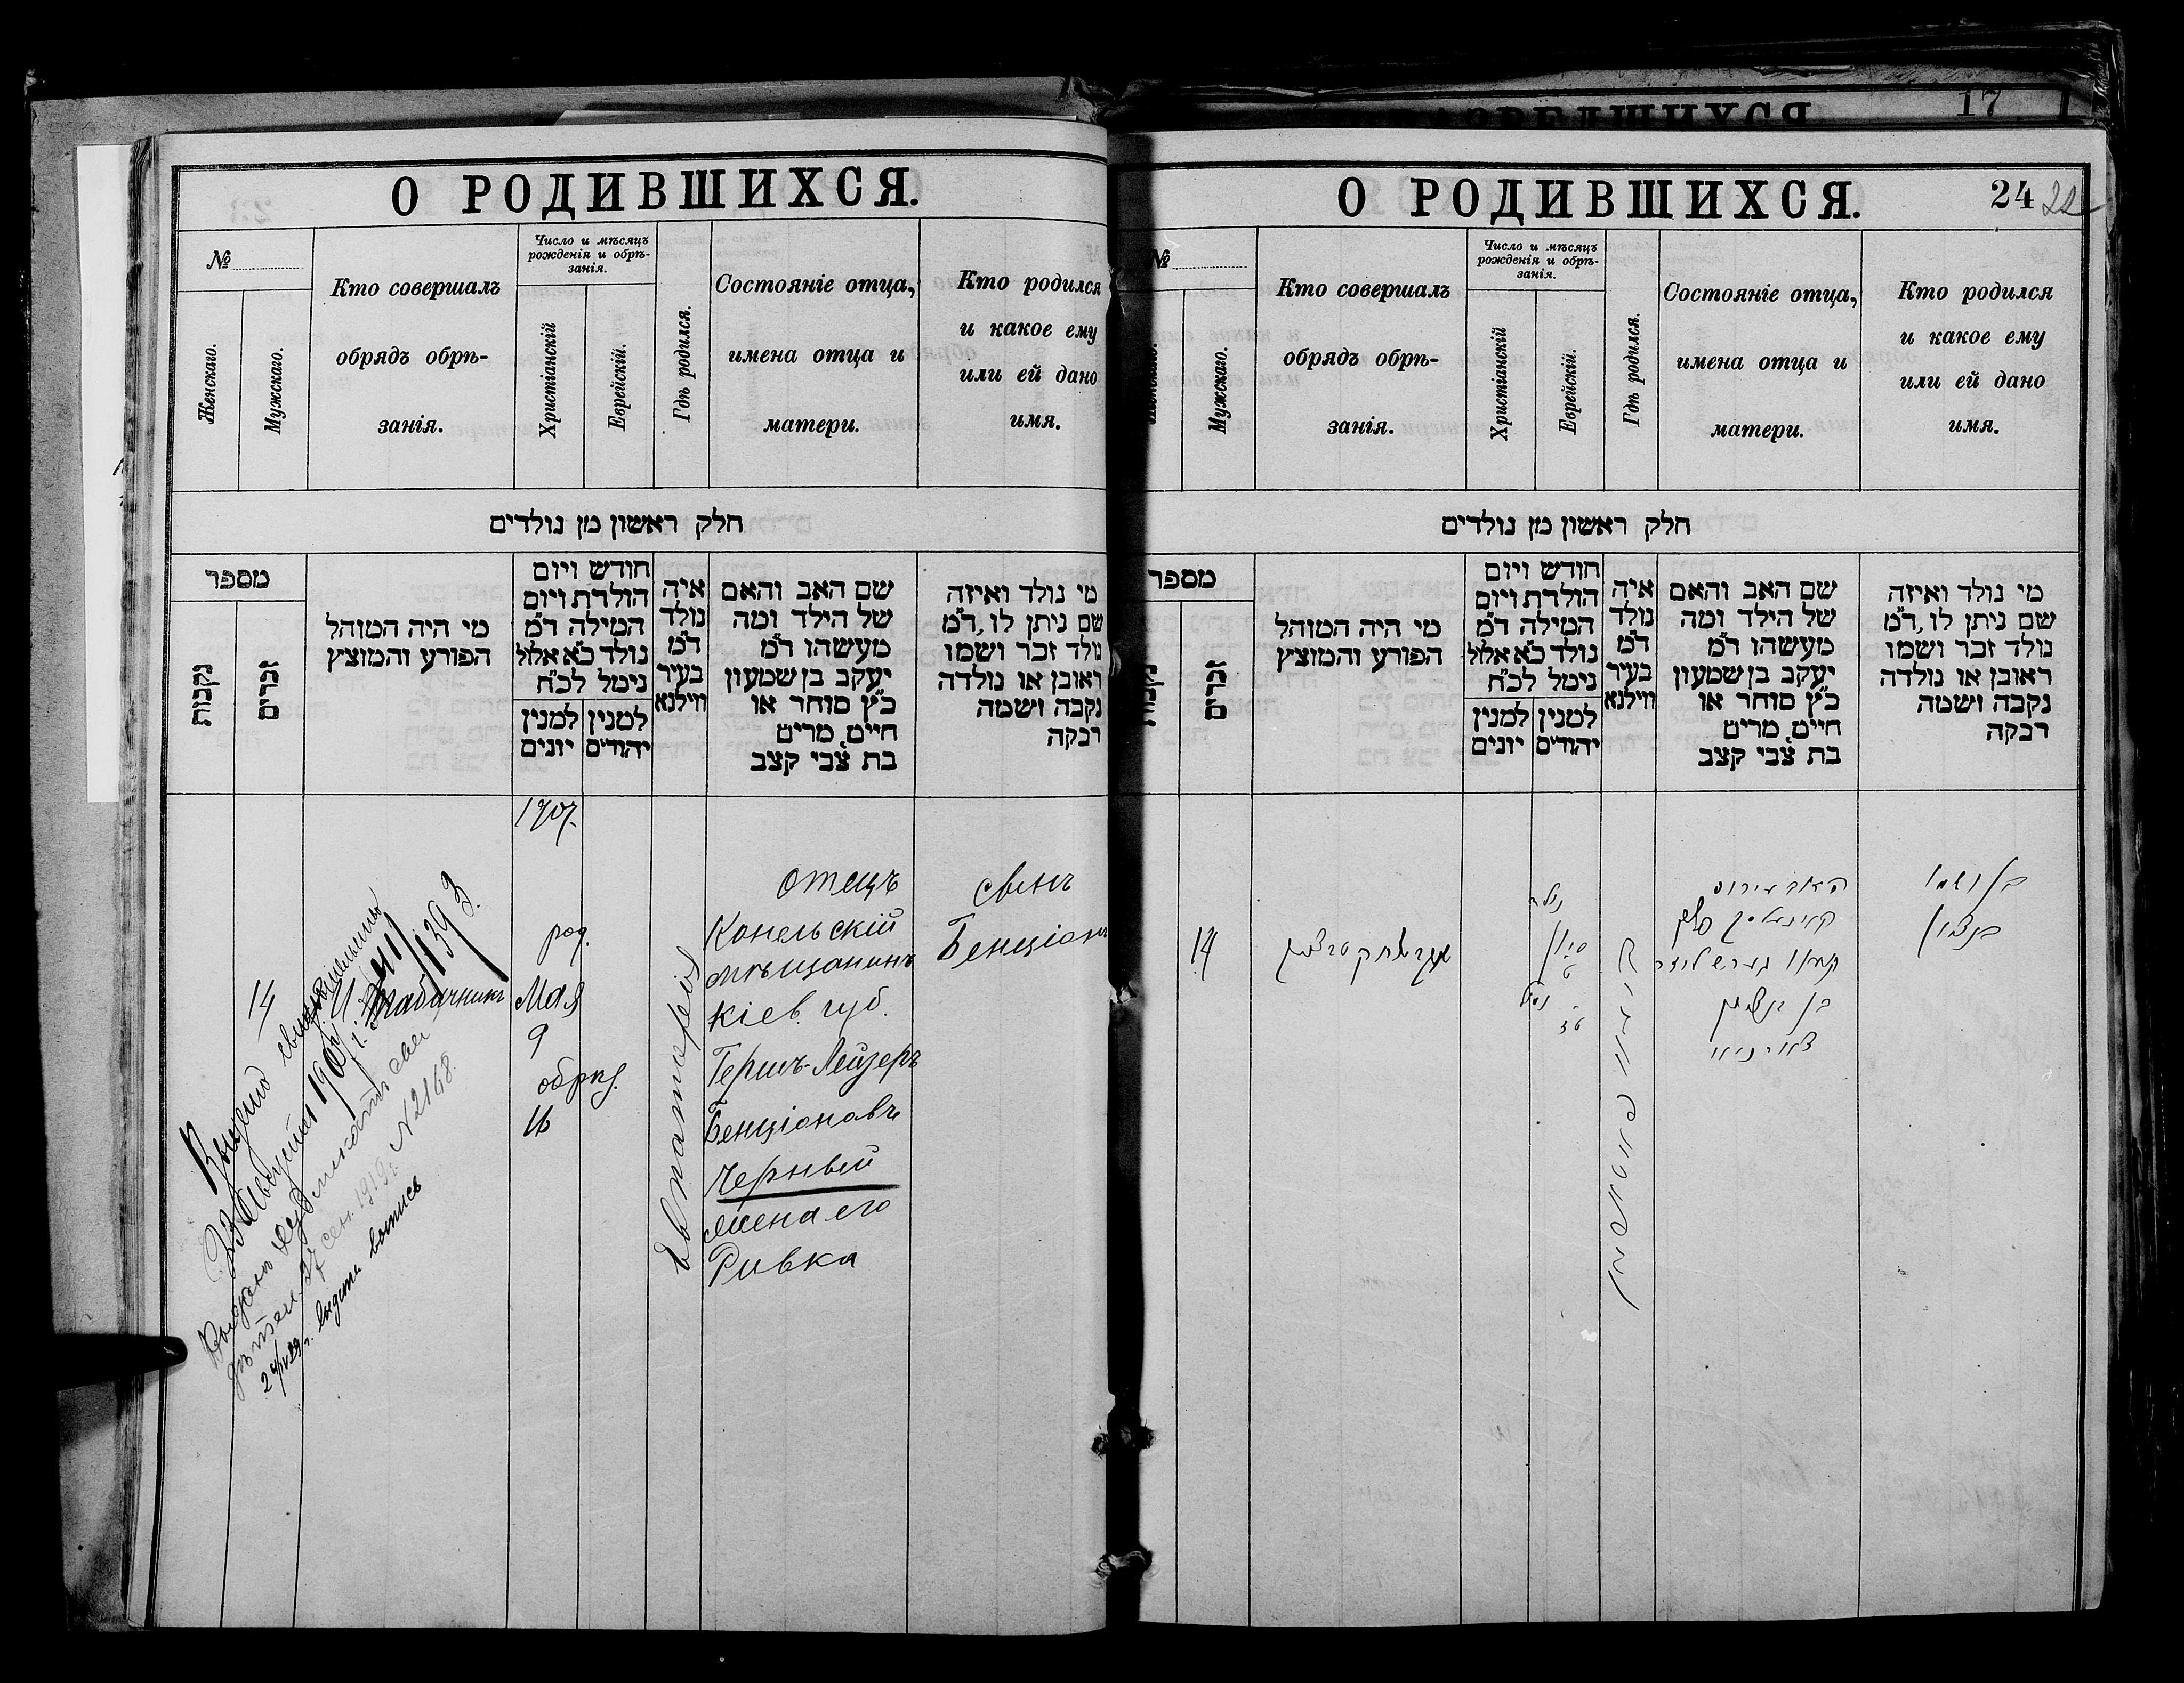 17
О РОДИВШИХСЯ.
№
Женскаго.
Мужскаго.
Кто совершалъ
обрядъ обрѣ-
занія.
Число и мѣсяцъ
рожденія и обрѣ-
занія.
Христіанскій
Еврейскій.
Гдѣ родился.
Состояніе отца,
имена отца и
матери.
Кто родился
и какое ему
или ей дано
имя.
חלק ראשון מן נולדים
מספר
נקבות
זכרים
מי היה המוהל
הפורע והמוצץ
חודש ויום
הולדת ויום
המילה ד״מ
נולד כ״א אלול
נימל לכ״ח
למנין יונים
למנין יהודים
איה
נולד
ד״מ
בעיר
ווילנא
שם האב והאם
של הילד ומה
מעשהו ד״מ
יעקב בן שמעון
כ״ץ סוחר או
חיים, מרים
בת צבי קצב
מי נולד ואיזה
שם ניתן לו, ד״מ
נולד זכר ושמו
ראובן או נולדה
נקבה ושמה
רבקה
1907.
14
Табачникъ
род.
Мая
9
обрѣз.
16
Евпаторія
отецъ
Конельскій
мѣщанинъ
Кіев. губ.
Гершъ-Лейзеръ
Бенціоновъ
Черный
жена его
Ривка
сынъ
Бенціонъ
23 Августа 1907 г.
1393.
сен. 1919 г. N 2168.
О РОДИВШИХСЯ.
24
22
№
Женскаго.
Мужскаго.
Кто совершалъ
обрядъ обрѣ-
занія.
Число и мѣсяцъ
рожденія и обрѣ-
занія.
Христіанскій
Еврейскій.
Гдѣ родился.
Состояніе отца,
имена отца и
матери.
Кто родился
и какое ему
или ей дано
имя.
חלק ראשון מן נולדים
מספר
נקבות
זכרים
מי היה המוהל
הפורע והמוצץ
חודש ויום
הולדת ויום
המילה ד״מ
נולד כ״א אלול
נימל לכ״ח
למנין יונים
למנין יהודים
איה
נולד
ד״מ
בעיר
ווילנא
שם האב והאם
של הילד ומה
מעשהו ד״מ
יעקב בן שמעון
כ״ץ סוחר או
חיים, מרים
בת צבי קצב
מי נולד ואיזה
שם ניתן לו, ד״מ
נולד זכר ושמו
ראובן או נולדה
נקבה ושמה
רבקה
14
נולד
סיון
בן ושמו
בנציון